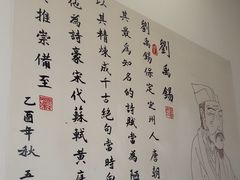 劉禹錫
劉禹錫保定定州人唐朝
其最為知名的詩賦當為陋
以其精煉成千古絕句當時向
他為詩豪宋代蘇軾黃庭
推崇備至
乙酉年秋